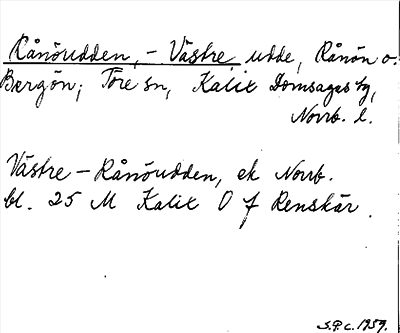 Rånöudden, - Västre udde, Rånön o.
Bergön; Töre sn, Kalix Domsagas tg,
Norrb. l.
Västre - Rånöudden, ek Norrb.
bl. 25 M Kalix O f Renskär.
S.P.c. 1959.